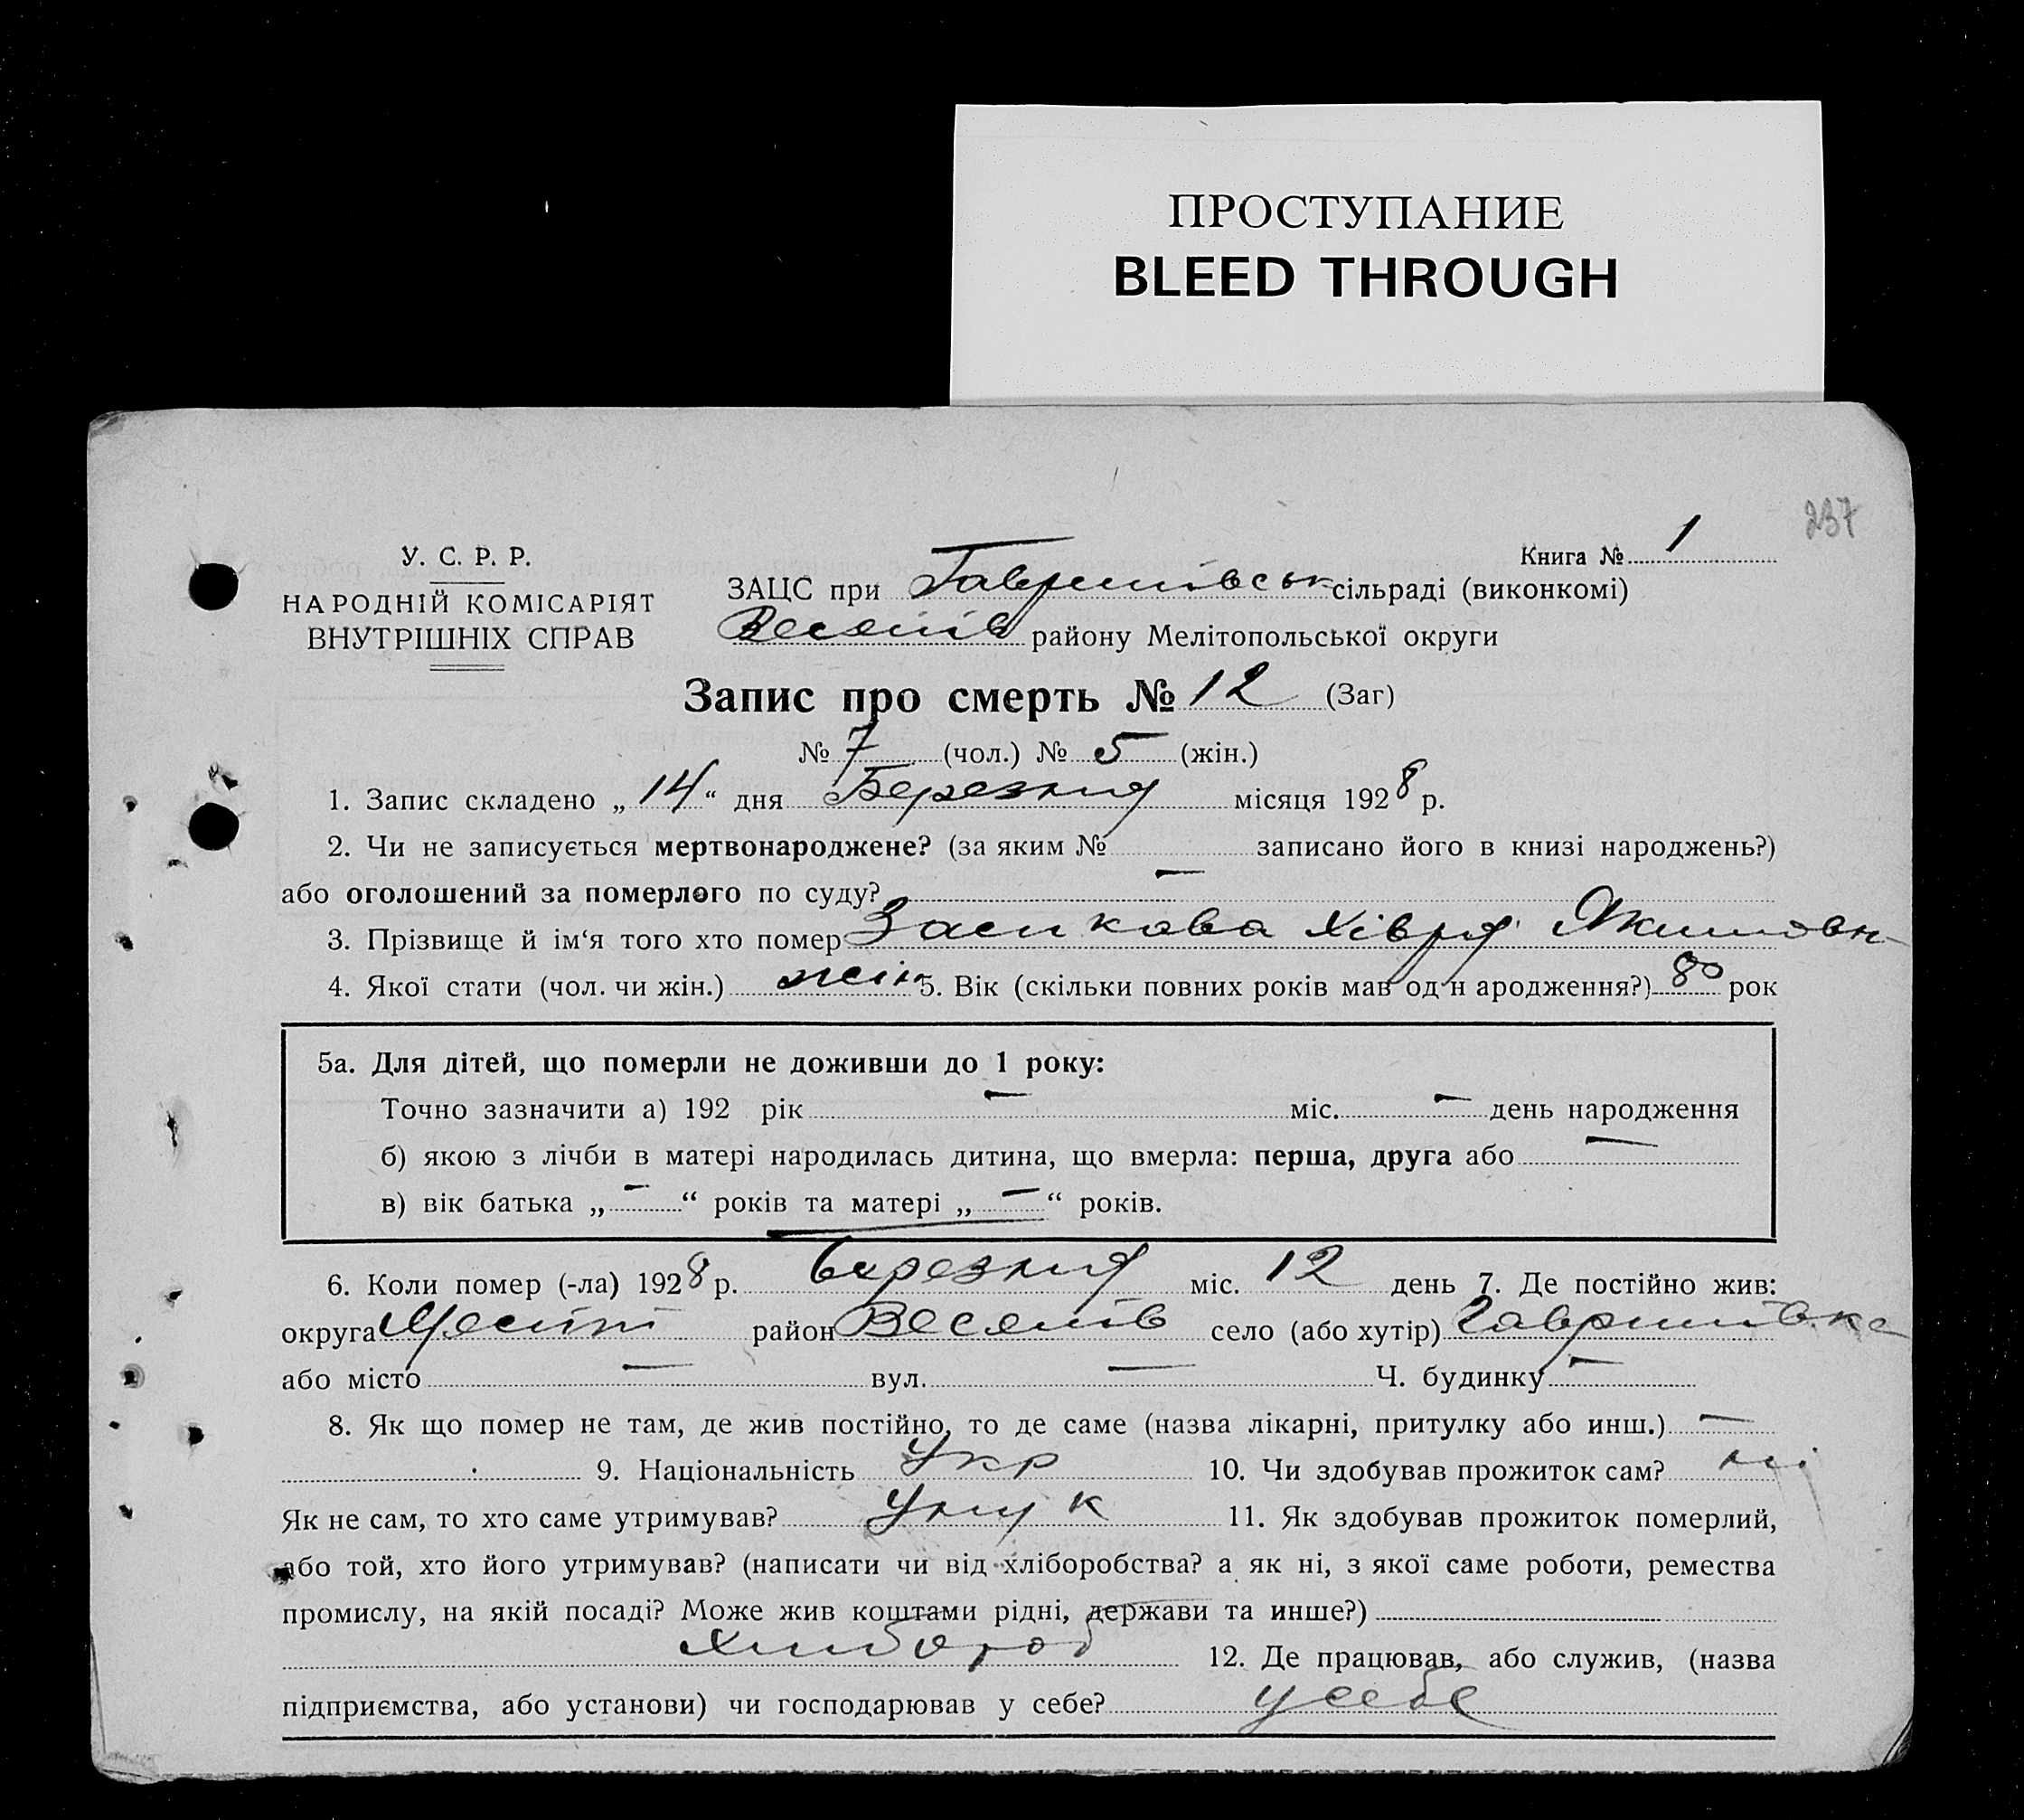 ПРОСТУПАНИЕ
BLEED THROUGH
237
У. С. Р. Р.
НАРОДНІЙ КОМІСАРІЯТ
ВНУТРІШНІХ СПРАВ
Книга № 1
ЗАЦС при Гавришівськ сільраді (виконкомі)
Веселів району Мелітопольської округи
Запис про смерть № 12 (Заг)
№ 7 (чол.) № 5 (жін.)
1. Запис складено „14“ дня Березня місяця 1928 р.
2. Чи не записується мертвонароджене? (за яким № записано його в книзі народжень?)
або оголошений за померлого по суду? —
3. Прізвище й ім‘я того хто помер Хівря Якимовн
4. Якої стати (чол. чи жін.) жін 5. Вік (скільки повних років мав од н ародження?) 80 рок
5а. Для дітей, що померли не доживши до 1 року:
Точно зазначити а) 192 рік — міс. — день народження
б) якою з лічби в матері народилась дитина, що вмерла: перша, друга або —
в) вік батька „—“ років та матері „—“ років.
6. Коли помер (-ла) 1928 р. березня міс. 12 день 7. Де постійно жив:
округа Меліт район Веселів село (або хутір) Гавришівка
або місто — вул. — Ч. будинку —
8. Як що помер не там, де жив постійно, то де саме (назва лікарні, притулку або инш.) —
9. Національність Укр 10. Чи здобував прожиток сам? ні
Як не сам, то хто саме утримував? Унук 11. Як здобував прожиток померлий,
або той, хто його утримував? (написати чи від хліборобства? а як ні, з якої саме роботи, ремества
промислу, на якій посаді? Може жив коштами рідні, держави та инше?)
хлибороб 12. Де працював, або служив, (назва
підприємства, або установи) чи господарював у себе? у себе